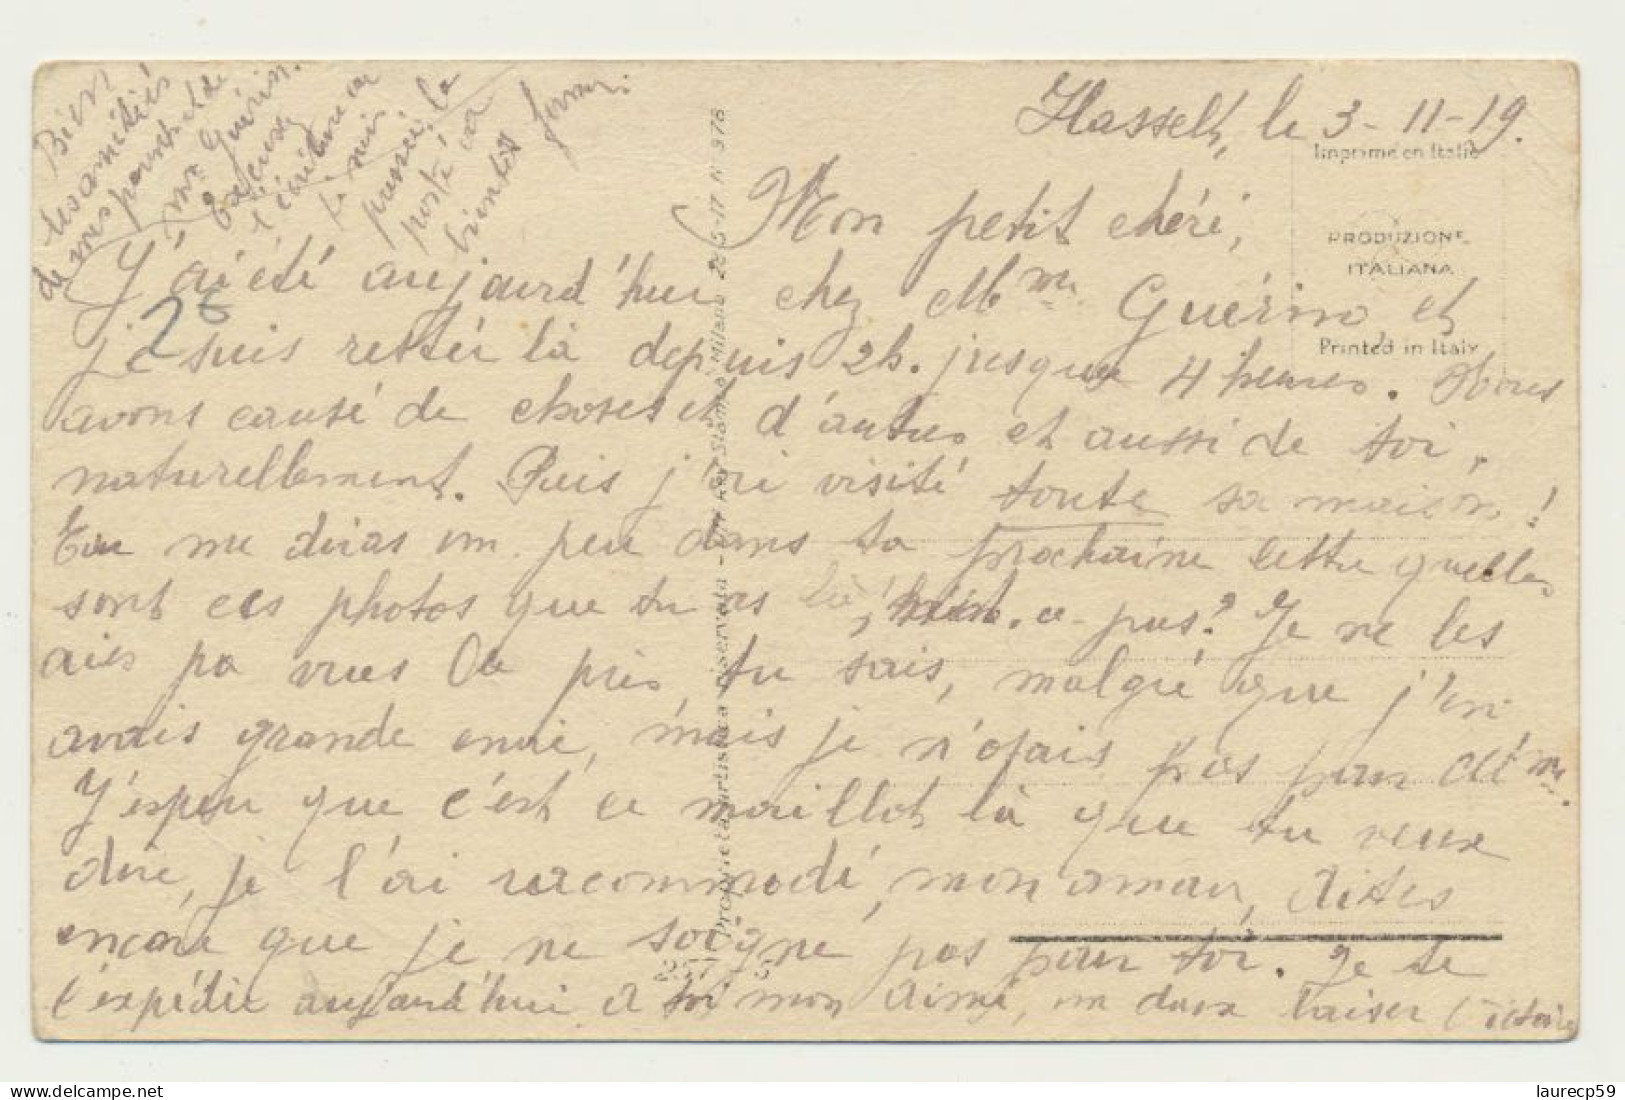 Hasselt, le 3-11-19.
Imprimé en Italie
Mon petit chéri,
PRODUZIONE
ITALIANA
Printed in Italy
J'ai été aujourd'hui chez Mme Guérin et
je suis restée là depuis 2h. jusque 4 heures. Nous
avons causé de choses et d'autres et aussi de toi,
naturellement. Puis j'ai visité toute sa maison!
Tu me diras un peu dans ta prochaine lettre quelles
sont ces photos que tu as là, n'est-ce pas? Je ne les
ais pa vues de près, tu sais, malgré que j'en
avais grande envie, mais je n'osais pas pour Mme.
J'espère que c'est ce maillot là que tu veux
dire, je l'ai raccommodé, mon amour, dites
encore que je ne soigne pas pour toi. Je te
l'expédie aujourd'hui à toi mon aimé, un doux baiser Victoire
Bien
les amitiés
de mes parents et de
Mme Guérin.
Excuse
l'écriture car
je suis
pressée, la
poste va
bientôt fermer.
28
Proprietà artistica riservata - Milano 26-5-17 N 976
257 - 5
laurecp59